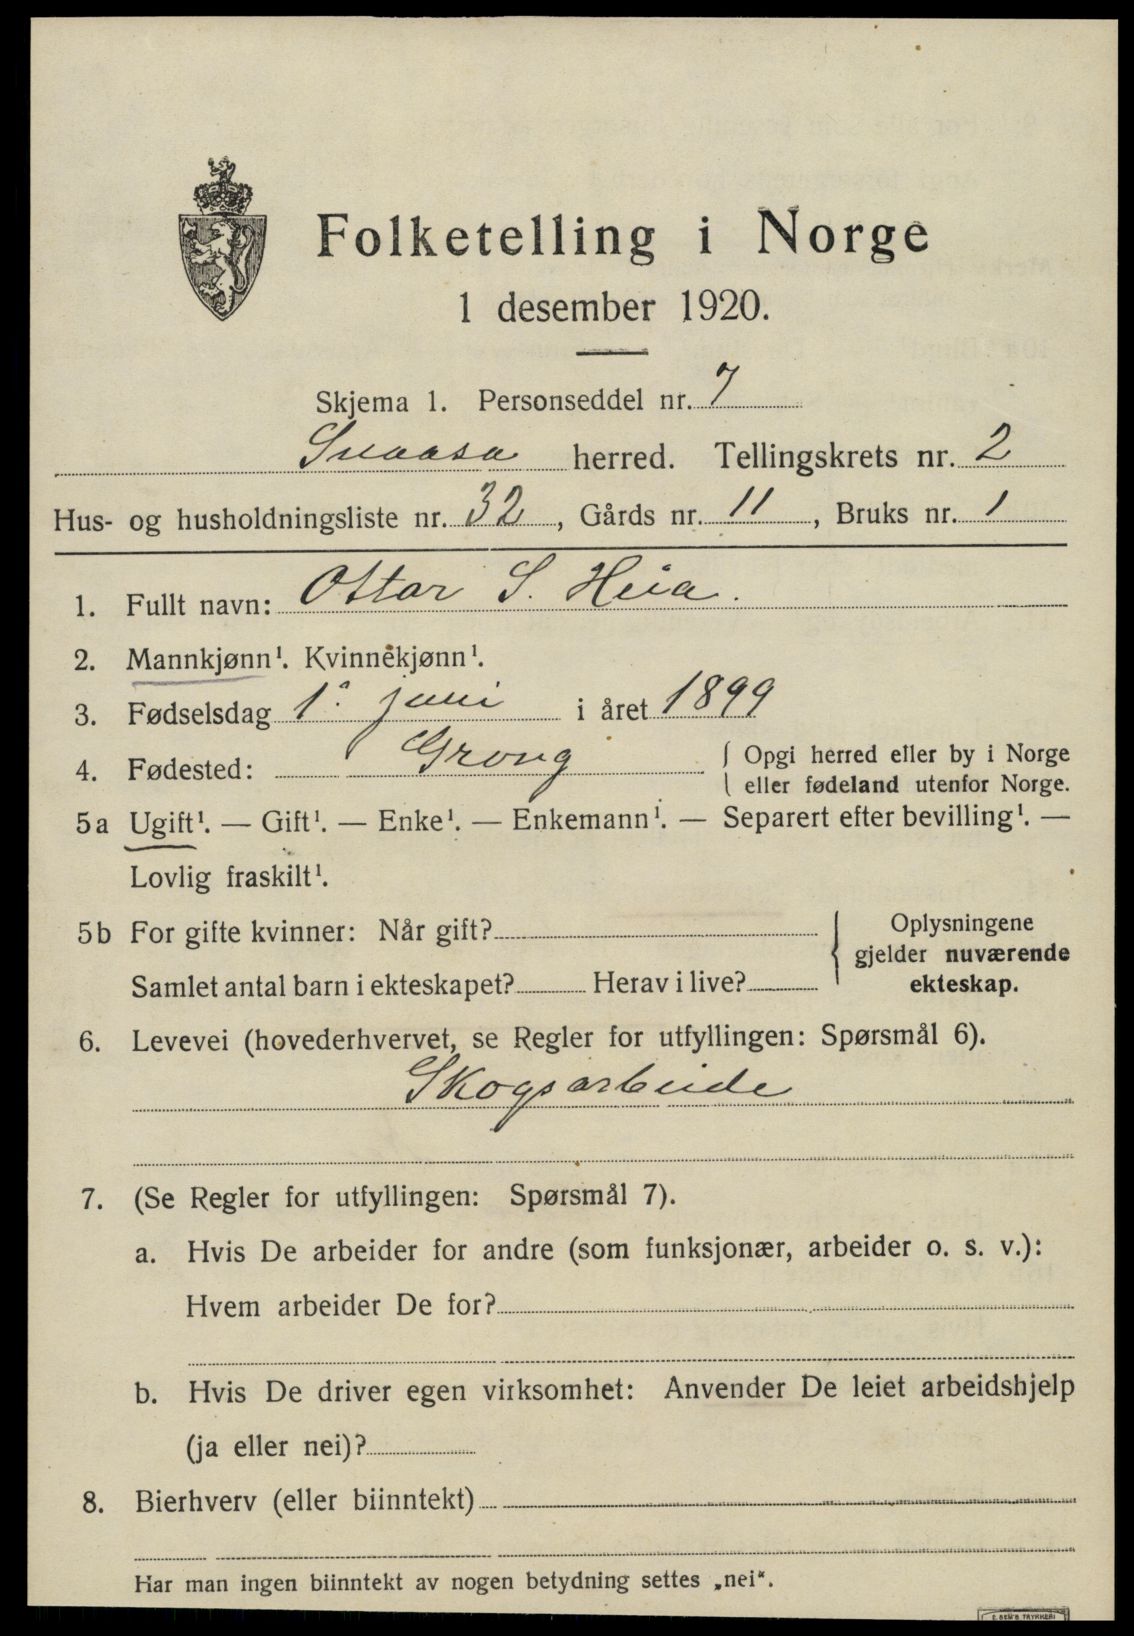 Folketelling i Norge
1 desember 1920.
Skjema 1. Personseddel nr. 7
Snaasa herred. Tellingskrets nr. 2
Hus- og husholdningsliste nr. 32, Gårds nr. 11, Bruks nr. 1
1. Fullt navn: Ottar S. Heia.
2. Mannkjønn¹. Kvinnekjønn¹.
3. Fødselsdag 1ª juni i året 1899
4. Fødested: Grong { Opgi herred eller by i Norge
eller fødeland utenfor Norge.
5a Ugift¹. — Gift¹. — Enke¹. — Enkemann¹. — Separert efter bevilling¹. —
Lovlig fraskilt¹.
5b For gifte kvinner: Når gift? { Oplysningene
gjelder nuværende
Samlet antal barn i ekteskapet? Herav i live? ekteskap.
6. Levevei (hovederhvervet, se Regler for utfyllingen: Spørsmål 6).
Skogsarbeide
7. (Se Regler for utfyllingen: Spørsmål 7).
a. Hvis De arbeider for andre (som funksjonær, arbeider o. s. v.):
Hvem arbeider De for?
b. Hvis De driver egen virksomhet: Anvender De leiet arbeidshjelp
(ja eller nei)?
8. Bierhverv (eller biinntekt)
Har man ingen biinntekt av nogen betydning settes „nei".
S. SEM'S TRYKKERI